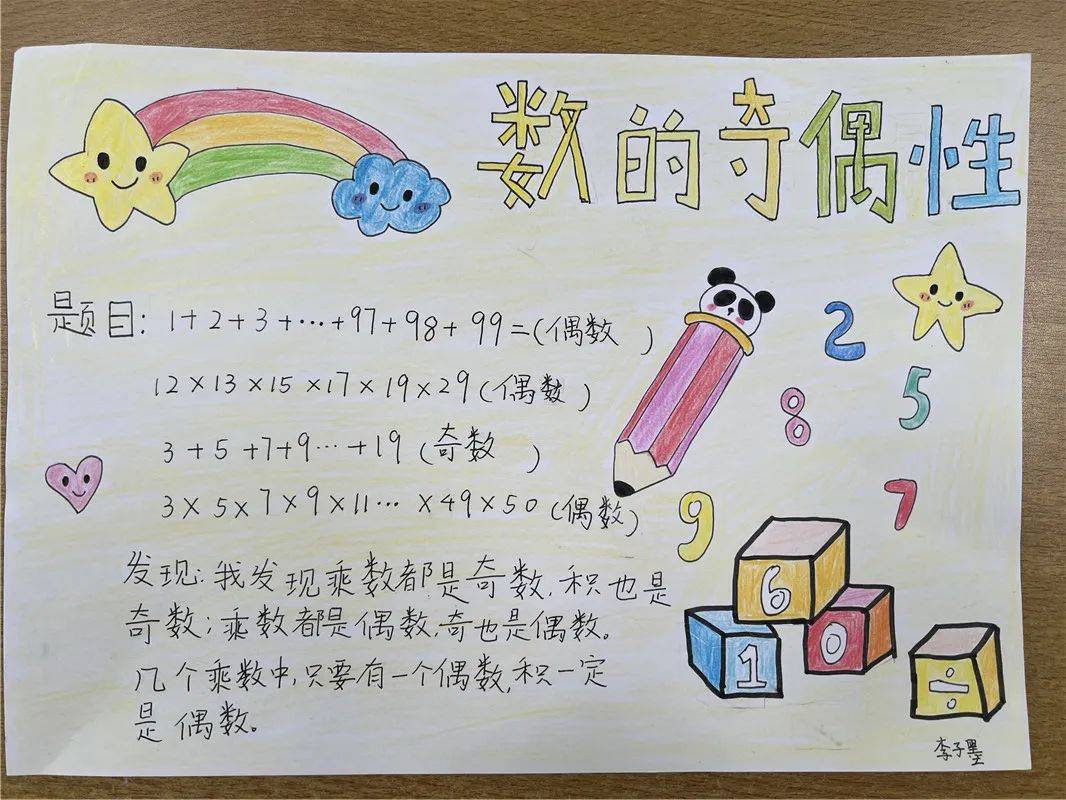 数的奇偶性
题目: 1+2+3+…+97+98+99=(偶数 )
12×13×15×17×19×29(偶数 )
3+5+7+9…+19(奇数 )
3×5×7×9×11…×49×50(偶数)
发现:我发现乘数都是奇数,积也是
奇数;乘数都是偶数,奇也是偶数。
几个乘数中,只要有一个偶数,积一定
是偶数。
2
5
8
7
9
6
1
0
÷
李子墨